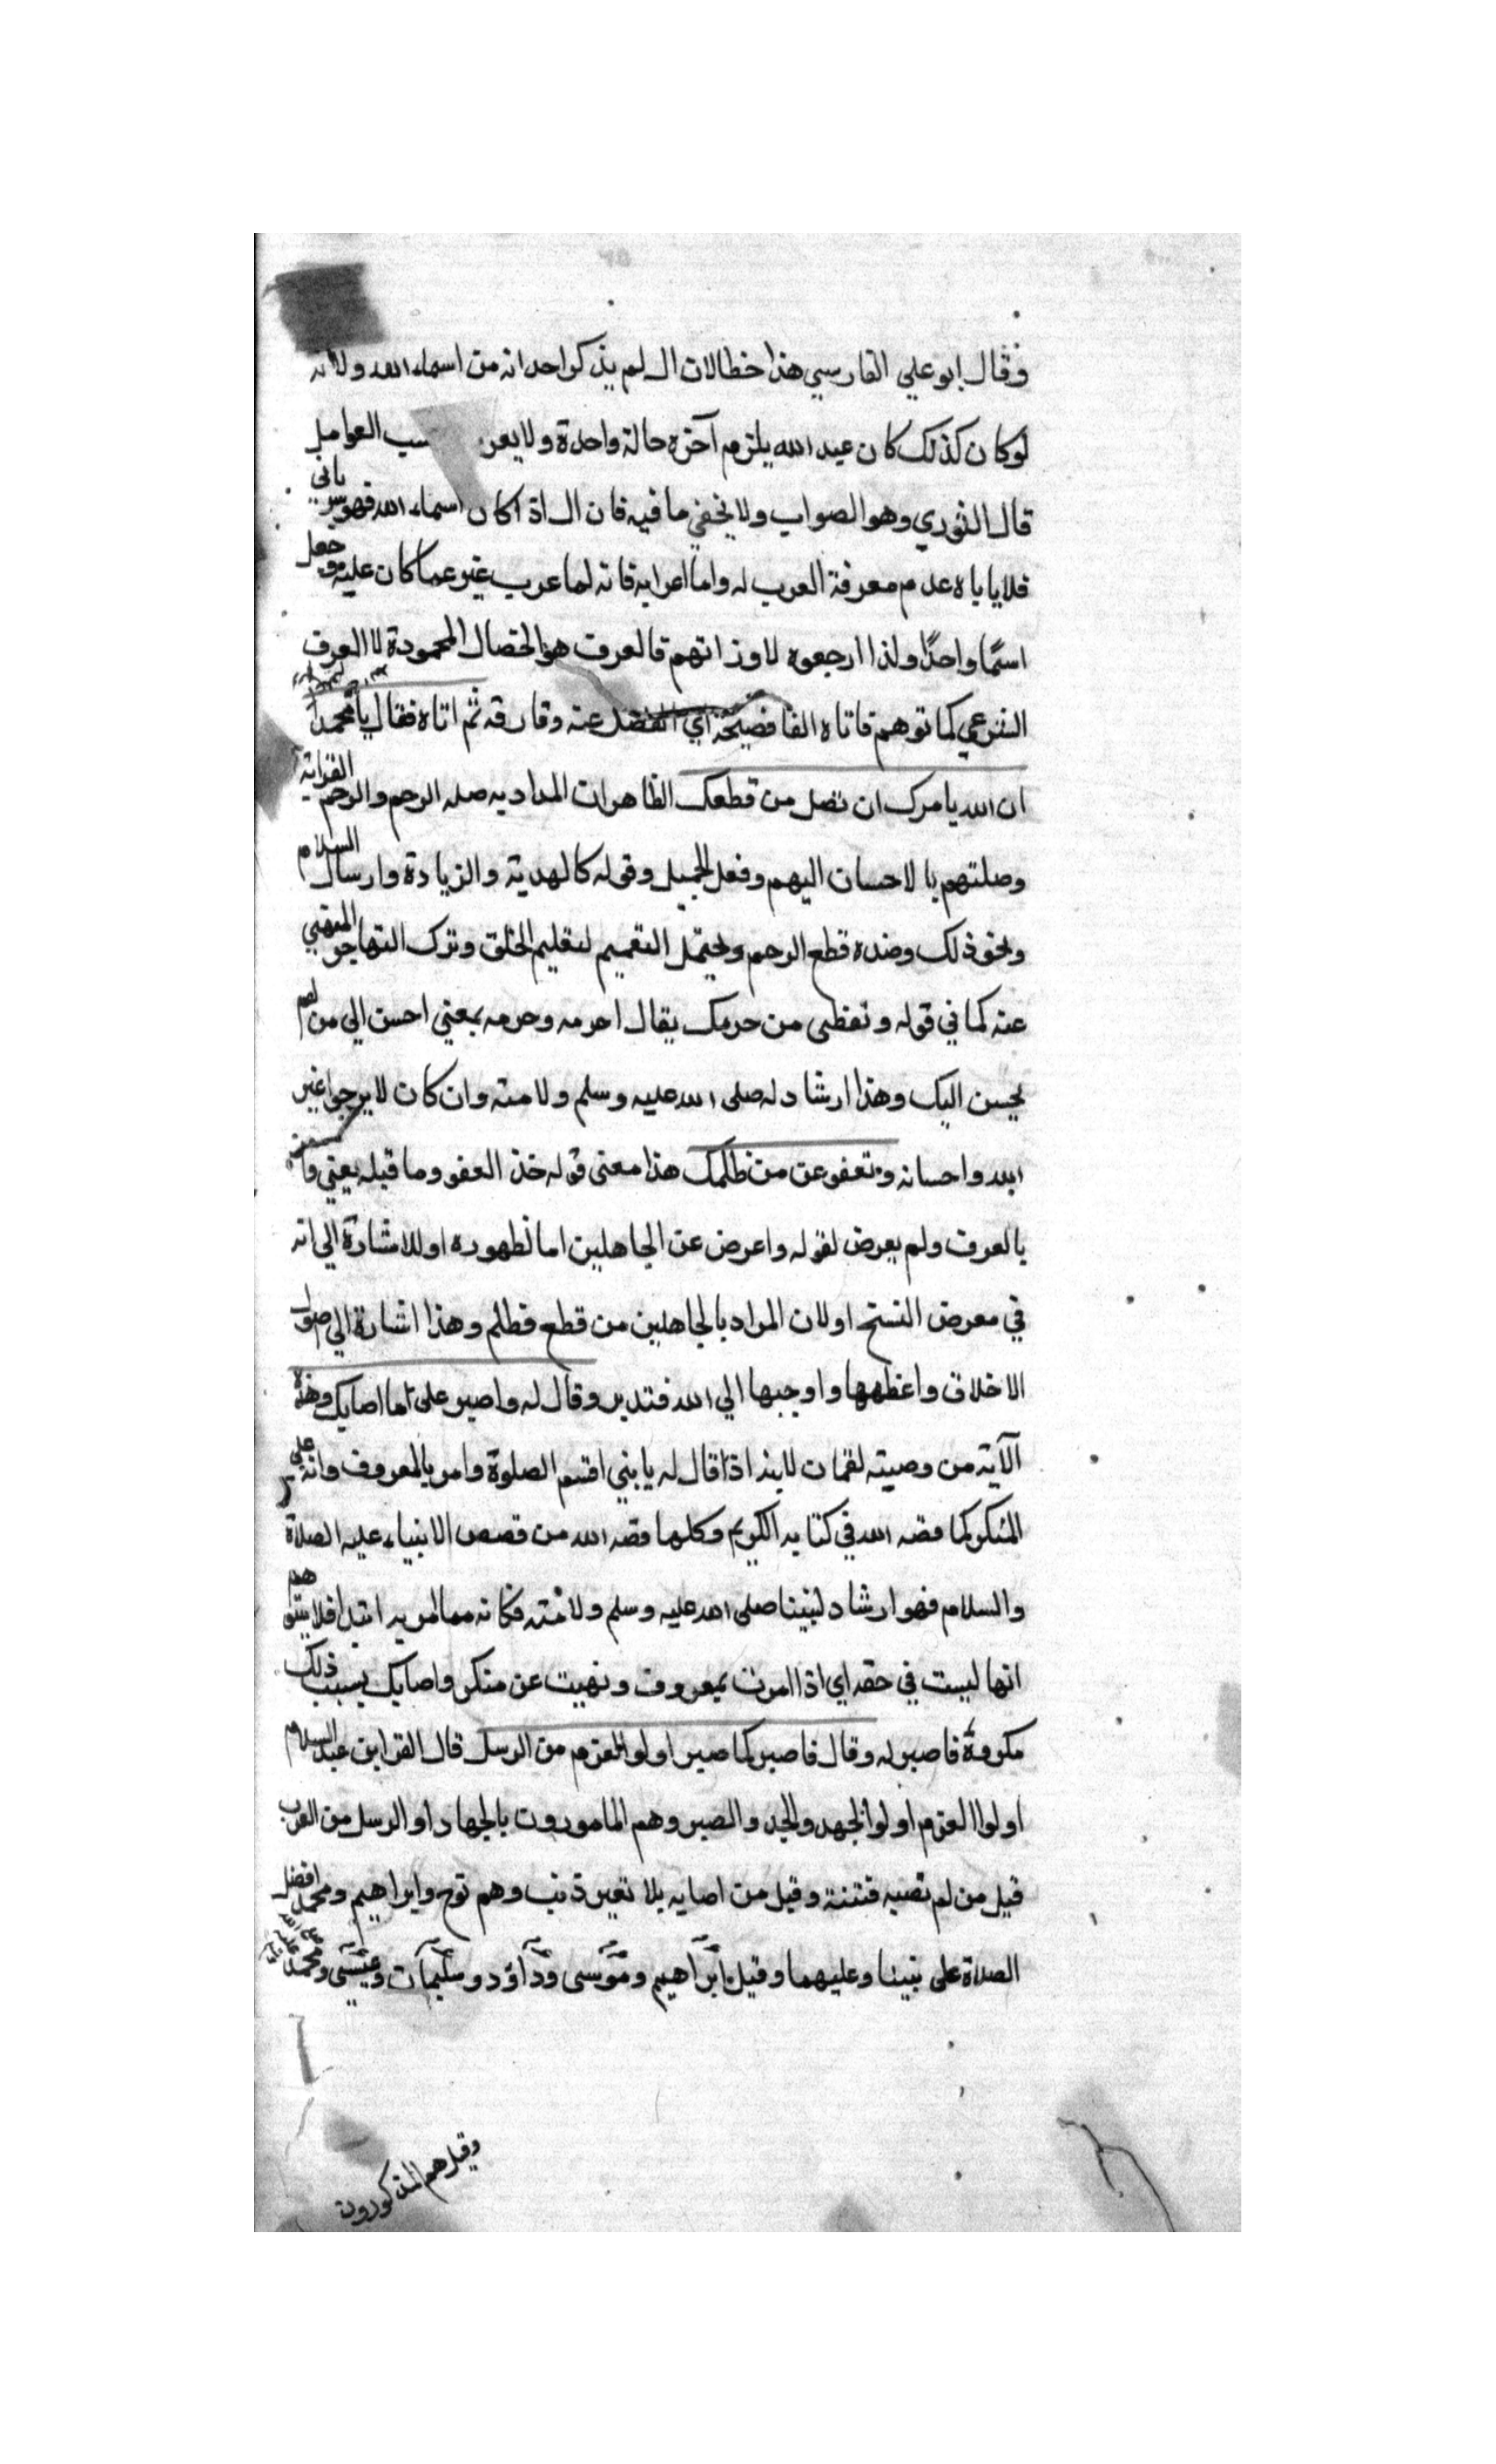 وقال ابو علي الفارسي هذا خطا لان ال لم يذكر احد انه من اسماء الله ولانه
لو كان كذلك كان عبد الله يلزم آخره حالة واحدة ولا يعر سب العوامل
قال النووي وهو الصواب ولا يخفي ما فيه فان ال اذا كان اسماء الله فهو سرياني
فلا ياباه عدم معرفة العرب له واما اعرابه فانه لما عرب غير عما كان عليه وجعل
اسمًا واحدًا ولذا ارجعوه لاوزانهم فالعرف هو الخصال المحمودة لا العرف
الشرعي كما توهم فاتاه الفا فصيحة اي انفصل عنه وفارقه ثم اتاه فقال يا محمد
ان الله يامرك ان تصل من قطعك الظاهر ان المراد به صله الرحم والرحم القرابة
وصلتهم بالاحسان اليهم وفعل الجميل وقوله كالهدية والزيادة وارسال السلام
ونحو ذلك وضده قطع الرحم ويحتمل التعميم لتعليم الخلق وترك التهاجر المنهي
عنه كما في قوله وتعطى من حرمك يقال احرمه وحرمه بمعني احسن الي من لم
يحسن اليك وهذا ارشاد له صلى الله عليه وسلم ولامته وان كان لا يرجي اغير
الله واحسانه وتعفو عن من ظلمك هذا معنى قوله خذ العفو وما قبله يعني وأمر
بالعرف ولم يعرض لقوله واعرض عن الجاهلين اما لظهوره او للاشارة الي انه
في معرض النسخ او لان المراد بالجاهلين من قطع فظلم وهذا اشارة الي اصول
الاخلاق واعظمها واوجبها الي الله فتدبر وقال له واصبر على ما اصابك وهذه
الآية من وصيته لقمان لابنه اذ قال له يا بني اقم الصلوة وامر بالمعروف وانه علي
المنكر كما قصه الله في كتابه الكريم وكلما قصه الله من قصص الانبياء عليه الصلاة
والسلام فهو ارشاد لنبينا صلى الله عليه وسلم ولامته فكانه مما امر به ابتدا فلا يتوهم
انها ليست في حقه اي اذا امرت بمعروف ونهيت عن منكر واصابك بسبب ذلك
مكروه فاصبر له وقال فاصبر كما صبر اولو العزم من الرسل قال العز ابن عبد السلام
اولوا العزم اولو الجهد والجد والصبر وهم المامورون بالجهاد او الرسل من العرب
قيل من لم تصبه فتنة وقيل من اصابه بلا بغير ذنب وهم نوح وابراهيم ومحمد افضل
الصلاة على نبينا وعليهما وقيل ابراهيم وموسى وداود وسليمان وعيسى ومحمد
وقيل هم المذكورون